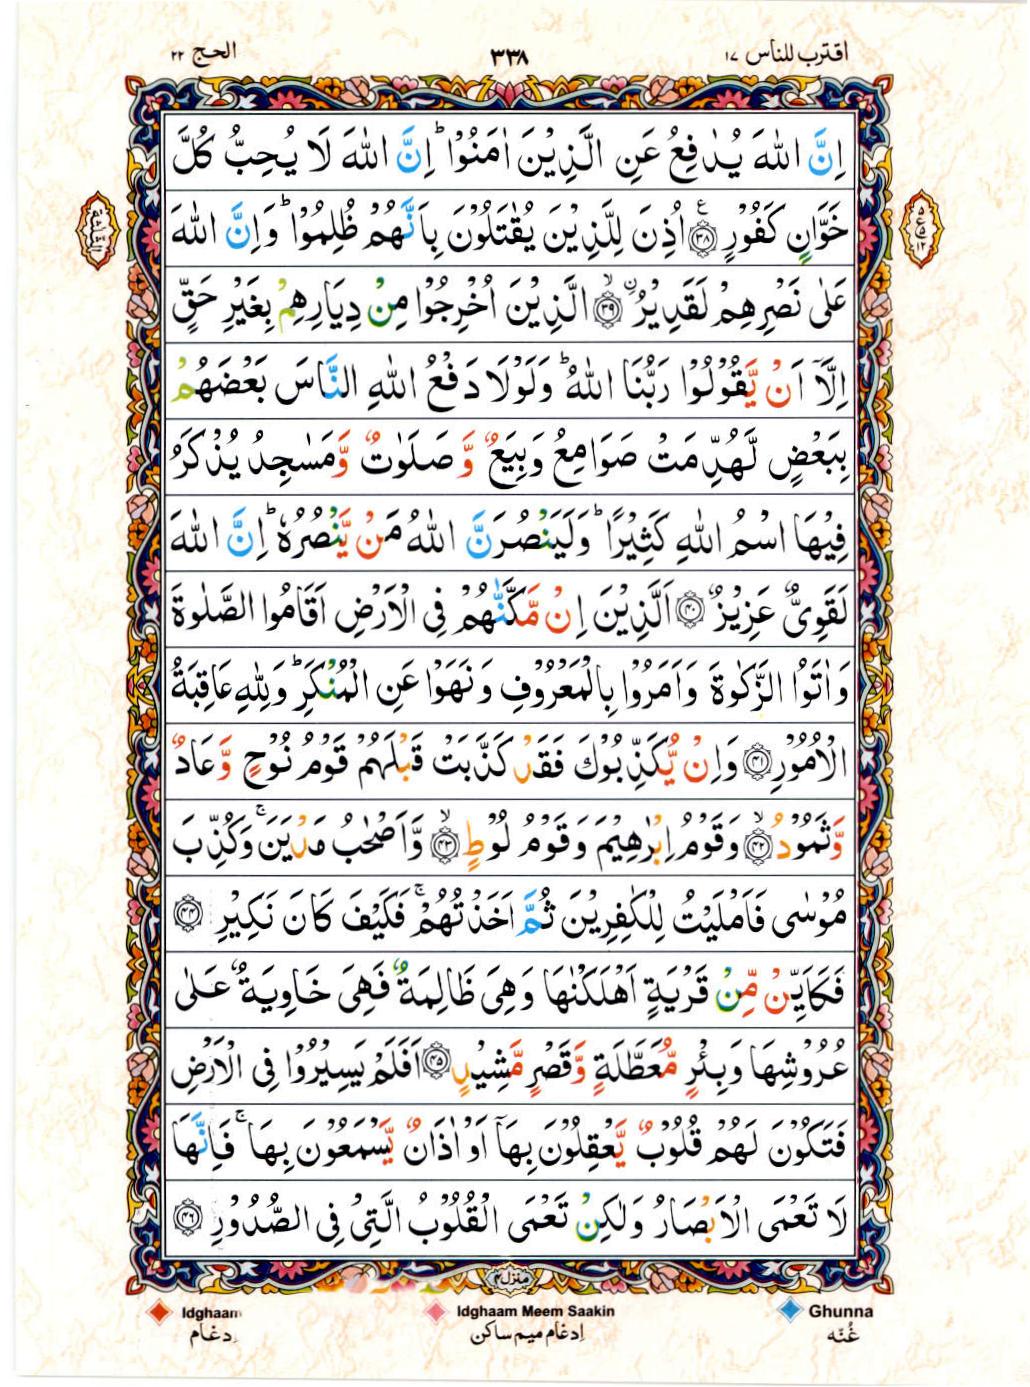 اقترب للناس ١٧
٣٣٨
الحج ٢٢
اِنَّ اللّٰهَ يُدٰفِعُ عَنِ الَّذِيْنَ اٰمَنُوْا ؕ اِنَّ اللّٰهَ لَا يُحِبُّ كُلَّ
خَوَّانٍ كَفُوْرٍ ﴿٣٨﴾ اُذِنَ لِلَّذِيْنَ يُقٰتَلُوْنَ بِاَنَّهُمْ ظُلِمُوْا ؕ وَاِنَّ اللّٰهَ
عَلٰى نَصْرِهِمْ لَقَدِيْرُ ﴿٣٩﴾ اۨلَّذِيْنَ اُخْرِجُوْا مِنْ دِيَارِهِمْ بِغَيْرِ حَقٍّ
اِلَّاۤ اَنْ يَّقُوْلُوْا رَبُّنَا اللّٰهُ ؕ وَلَوْلَا دَفْعُ اللّٰهِ النَّاسَ بَعْضَهُمْ
بِبَعْضٍ لَّهُدِّمَتْ صَوَامِعُ وَبِيَعٌ وَّصَلَوٰتٌ وَّمَسٰجِدُ يُذْكَرُ
فِيْهَا اسْمُ اللّٰهِ كَثِيْرًا ؕ وَلَيَنْصُرَنَّ اللّٰهُ مَنْ يَّنْصُرُهٗ ؕ اِنَّ اللّٰهَ
لَقَوِىٌّ عَزِيْزٌ ﴿٤٠﴾ اَلَّذِيْنَ اِنْ مَّكَّنّٰهُمْ فِى الْاَرْضِ اَقَامُوا الصَّلٰوةَ
وَاٰتَوُا الزَّكٰوةَ وَاَمَرُوْا بِالْمَعْرُوْفِ وَنَهَوْا عَنِ الْمُنْكَرِ ؕ وَلِلّٰهِ عَاقِبَةُ
الْاُمُوْرِ ﴿٤١﴾ وَاِنْ يُّكَذِّبُوْكَ فَقَدْ كَذَّبَتْ قَبْلَهُمْ قَوْمُ نُوْحٍ وَّعَادٌ
وَّثَمُوْدُ ﴿٤٢﴾ وَقَوْمُ اِبْرٰهِيْمَ وَقَوْمُ لُوْطٍ ﴿٤٣﴾ وَّاَصْحٰبُ مَدْيَنَ ۚ وَكُذِّبَ
مُوْسٰى فَاَمْلَيْتُ لِلْكٰفِرِيْنَ ثُمَّ اَخَذْتُهُمْ ۚ فَكَيْفَ كَانَ نَكِيْرِ ﴿٤٤﴾
فَكَاَيِّنْ مِّنْ قَرْيَةٍ اَهْلَكْنٰهَا وَهِىَ ظَالِمَةٌ فَهِىَ خَاوِيَةٌ عَلٰى
عُرُوْشِهَا وَبِئْرٍ مُّعَطَّلَةٍ وَّقَصْرٍ مَّشِيْدٍ ﴿٤٥﴾ اَفَلَمْ يَسِيْرُوْا فِى الْاَرْضِ
فَتَكُوْنَ لَهُمْ قُلُوْبٌ يَّعْقِلُوْنَ بِهَاۤ اَوْ اٰذَانٌ يَّسْمَعُوْنَ بِهَا ۚ فَاِنَّهَا
لَا تَعْمَى الْاَبْصَارُ وَلٰكِنْ تَعْمَى الْقُلُوْبُ الَّتِىْ فِى الصُّدُوْرِ ﴿٤٦﴾
منزل ٤
Idghaam
Idghaam Meem Saakin
Ghunna
إدغام
إدغام ميم ساكن
غُنّه